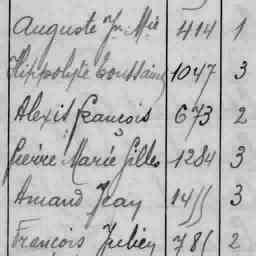 Auguste Jn Mie 414 1
Hippolyte Toussaint 1047 3
Alexis François 673 2
Pierre Marie Gilles 1284 3
Amand Jean 1455 3
François Julien 785 2